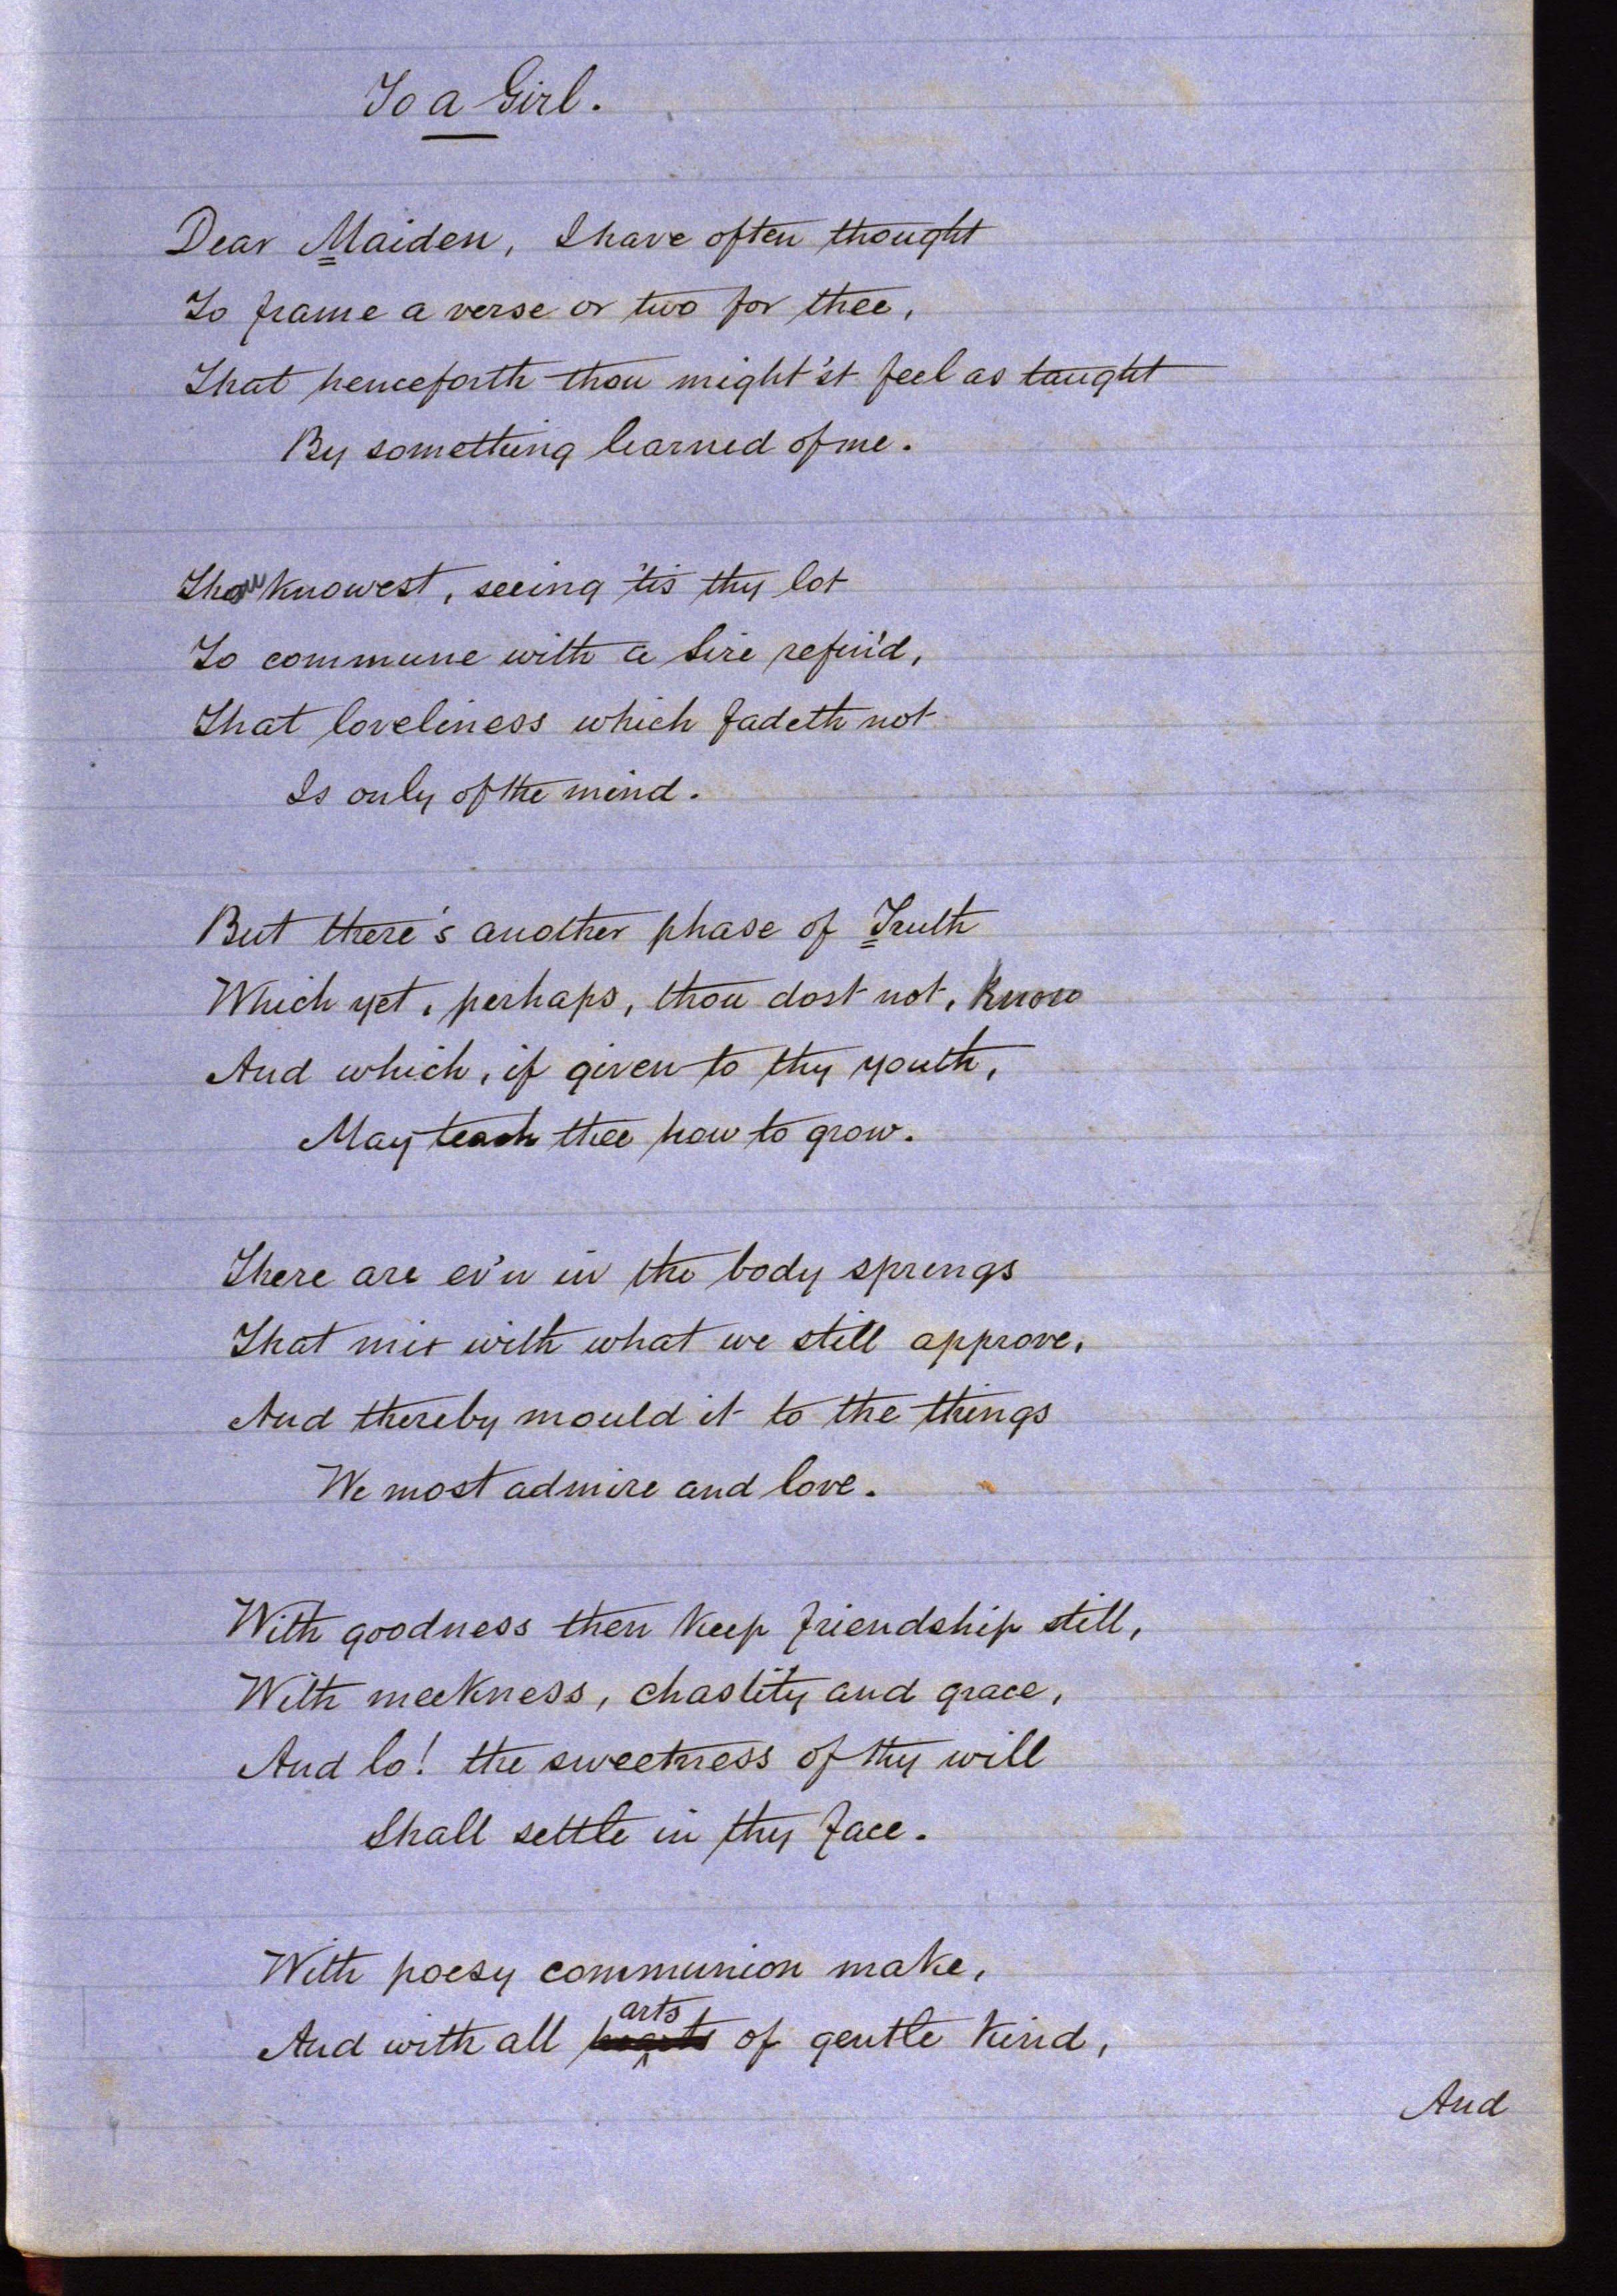 To a Girl.
Dear Maiden, I have often thought
To frame a verse or two for thee,
That henceforth thou might'st feel as taught
By something learned of me.
Thou knowest, seeing 'tis thy lot
To commune with a Sire refin'd,
That loveliness which fadeth not
Is only of the mind.
But there's another phase of Truth
Which yet, perhaps, thou dost not, know
And which, if given to thy youth,
May teach thee how to grow.
There are ev'n in the body springs
That mix with what we still approve,
And thereby mould it to the things
We most admire and love.
With goodness then keep friendship still,
With meekness, chastity and grace,
And lo! the sweetness of thy will
Shall settle in thy face.
With poesy communion make,
arts
And with all hearts of gentle kind,
And